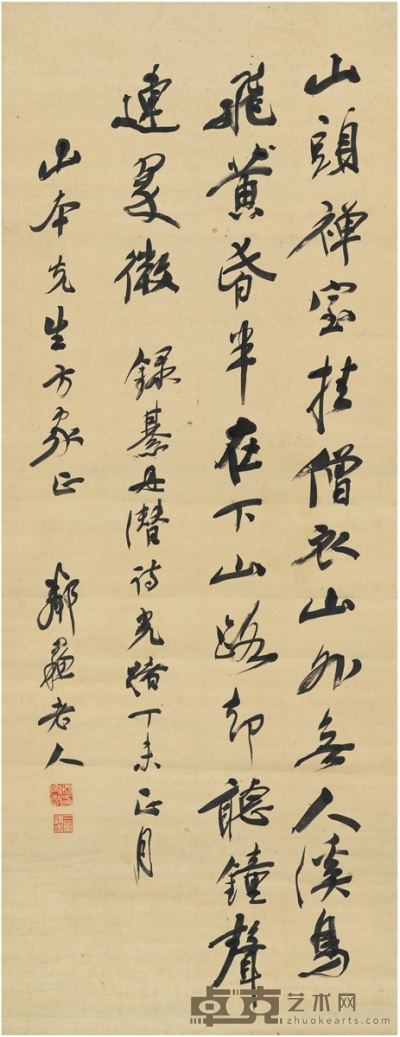 山頭禪室挂僧衣山外無人溪鳥
飛黄昏半在下山路却聽鐘聲
連翠微 録綦毋潛詩光緒丁未正月
山本先生方家正 鄰蘇老人
卓克艺术网
zhuokearts.com